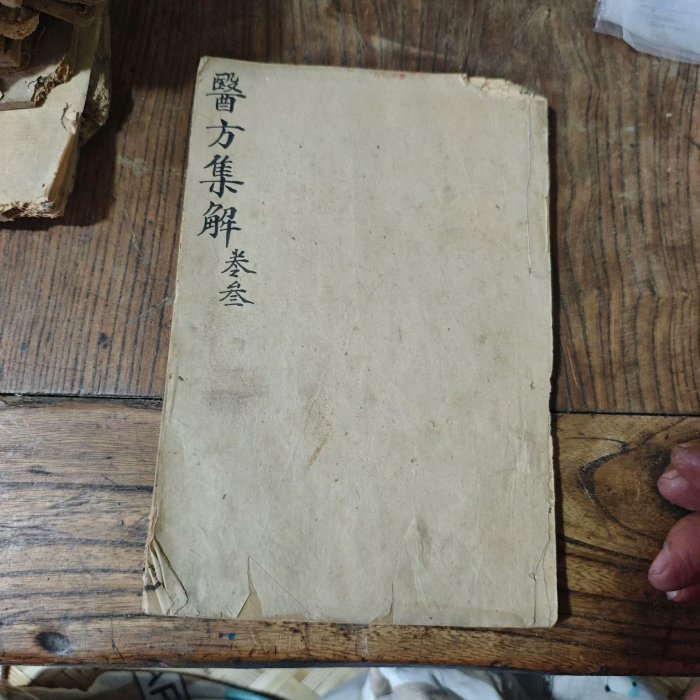 醫方集解
卷叁